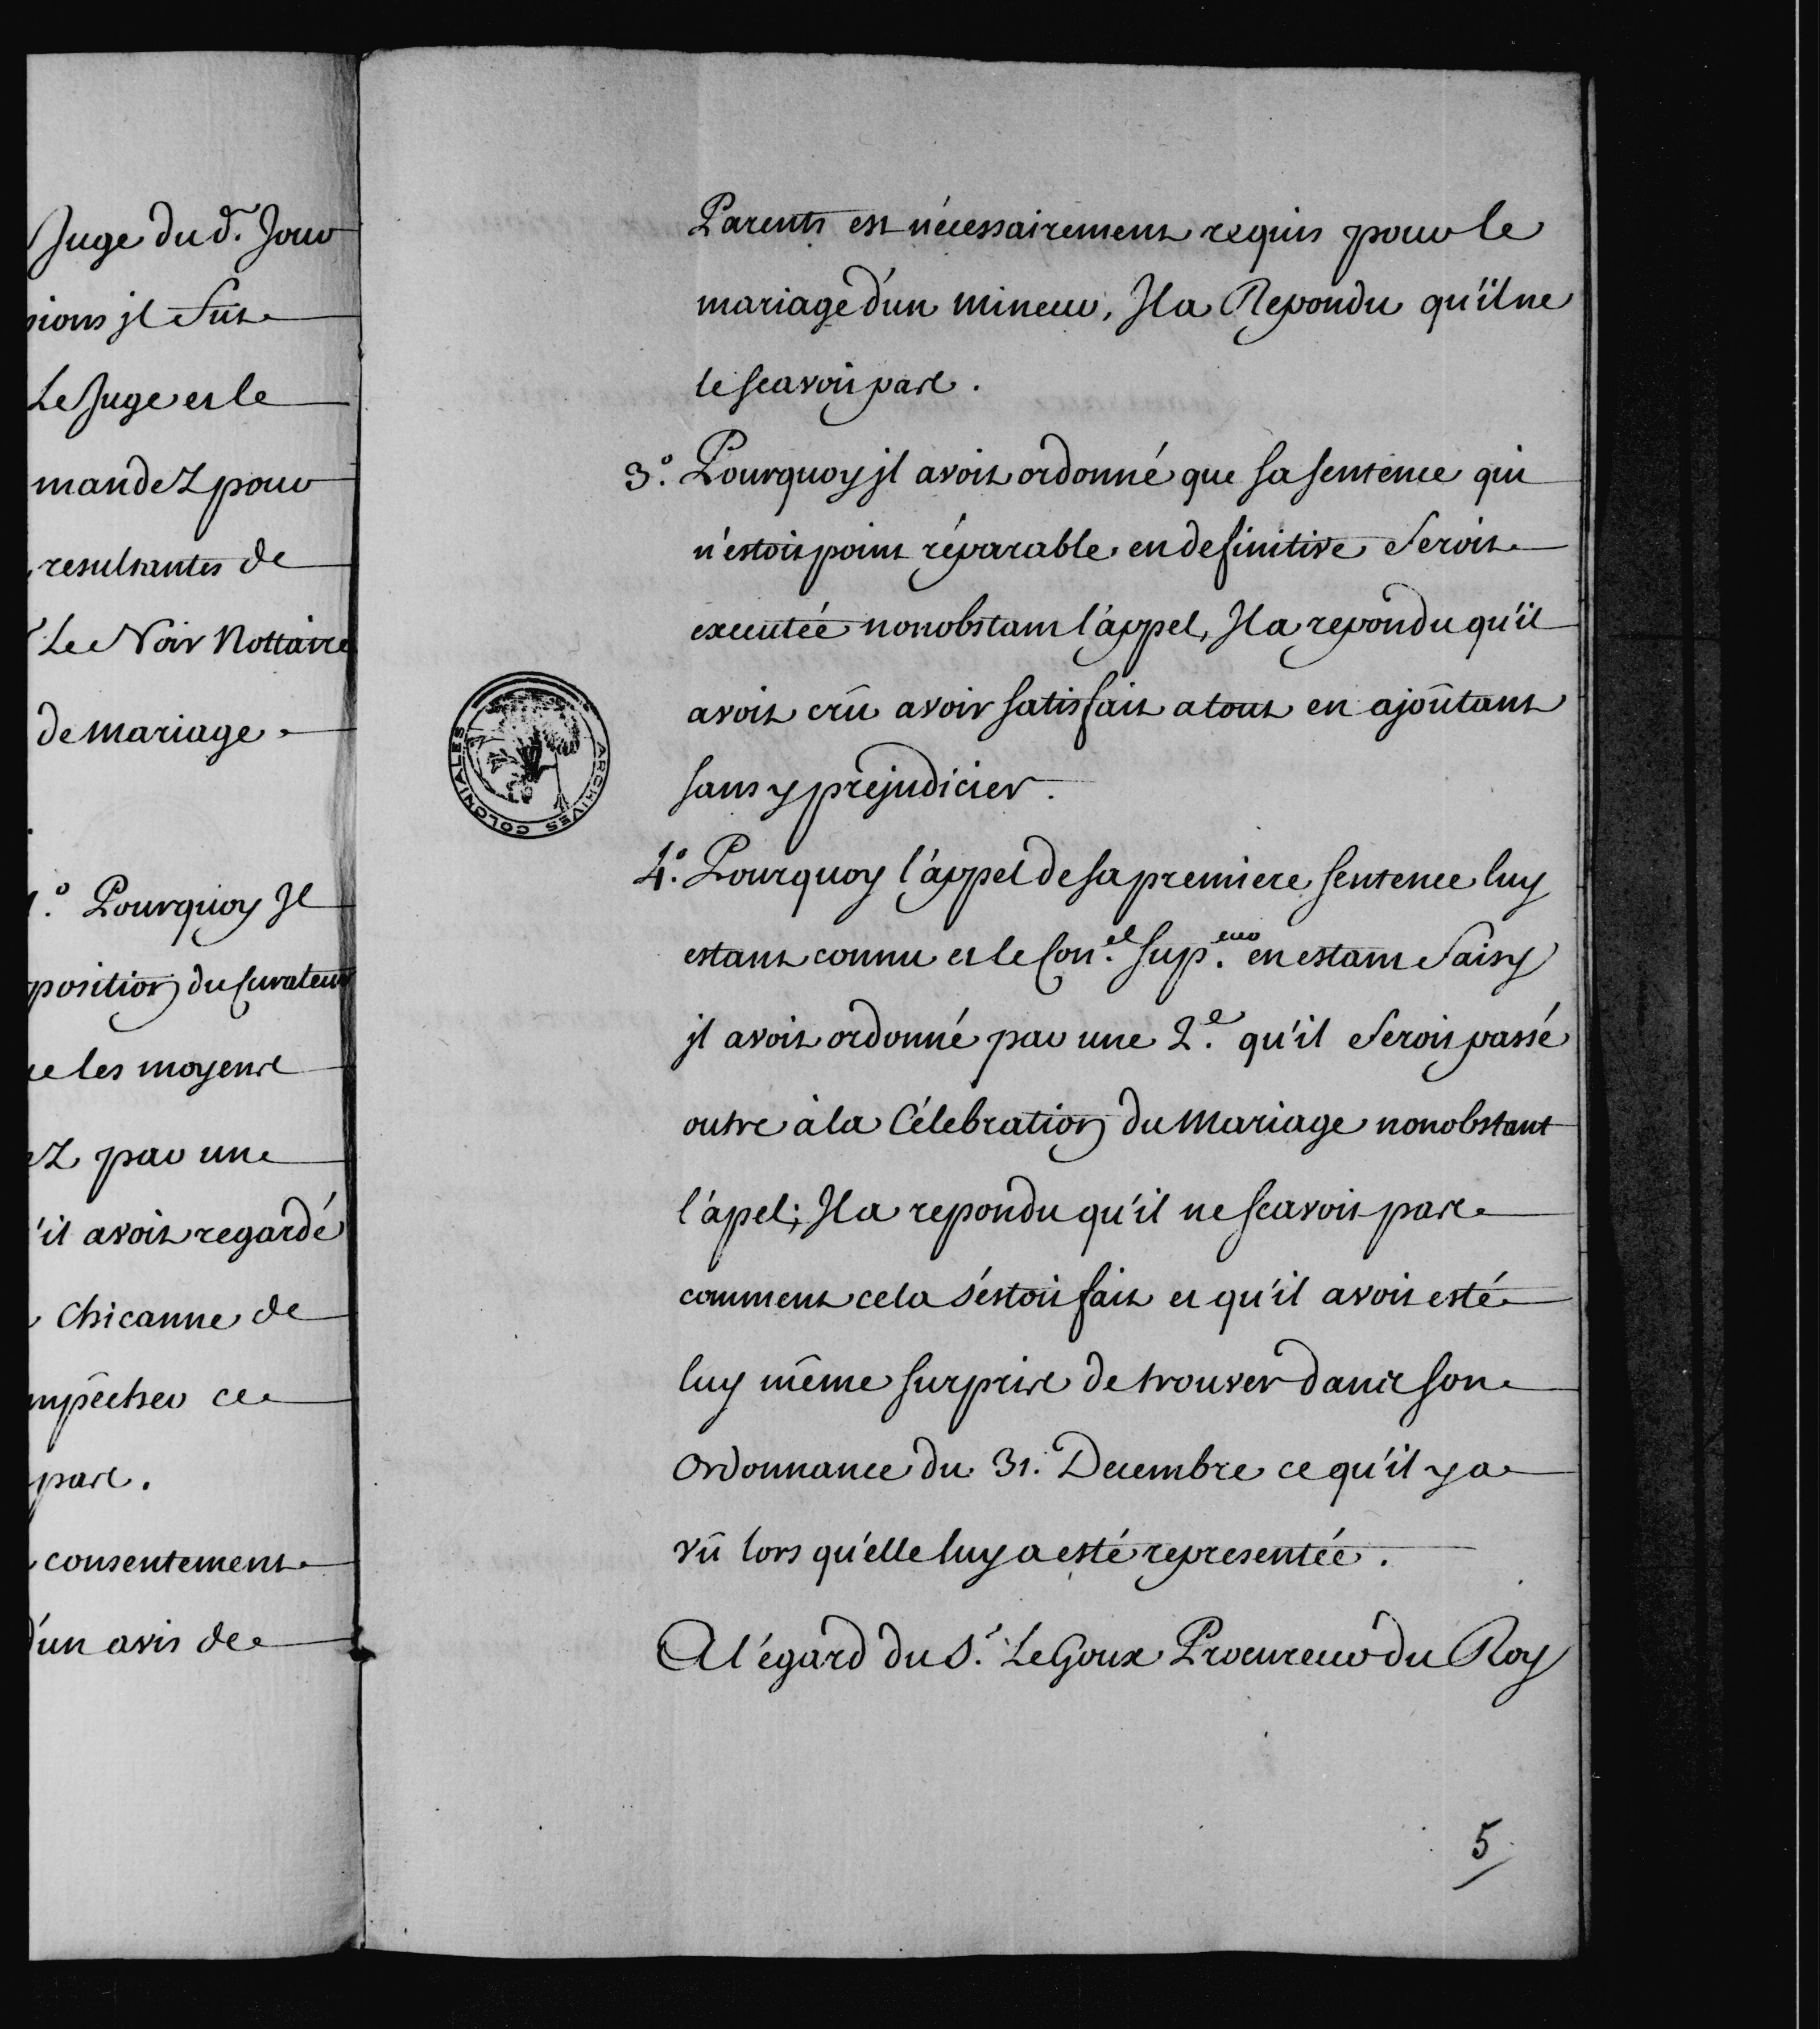 Juge du d. Jour
sions jl fut
Le Juge et le
mandez pour
resultantes de
Le Noir Nottaire
de mariage.
1.° Pourquoy Il
position du Curateur
les moyens
ez par une
'il avoit regardé
Chicanne de
mpêcher ce
pas.
consentement
d'un avis de
Parents est nécessairement requis pour le
mariage d'un mineur, Il a Repondu qu'il ne
le scavoit pas.
3.° Pourquoy jl avoit ordonné que sa sentence qui
n'estoit point réparable en definitive seroit
executée nonobstant l'appel, Il a repondu qu'il
avoit crû avoir satisfait a tout en ajoûtant
sans y préjudicier.
4.° Pourquoy l'appel de sa premiere sentence luy
estant connu et le Con.el Sup.eur en estant saisy
jl avoit ordonné par une 2.e qu'il seroit passé
outre à la Célebration du Mariage nonobstant
l'apel; Il a repondu qu'il ne scavoit pas
comment cela s'éstoit fait et qu'il avoit esté
luy même surpris de trouver dans son
Ordonnance du 31. Decembre ce qu'il y a
vû lors qu'elle luy a esté representée.
A l'égard du S.r Le Goux Procureur du Roy
5
ARCHIVES COLONIALES